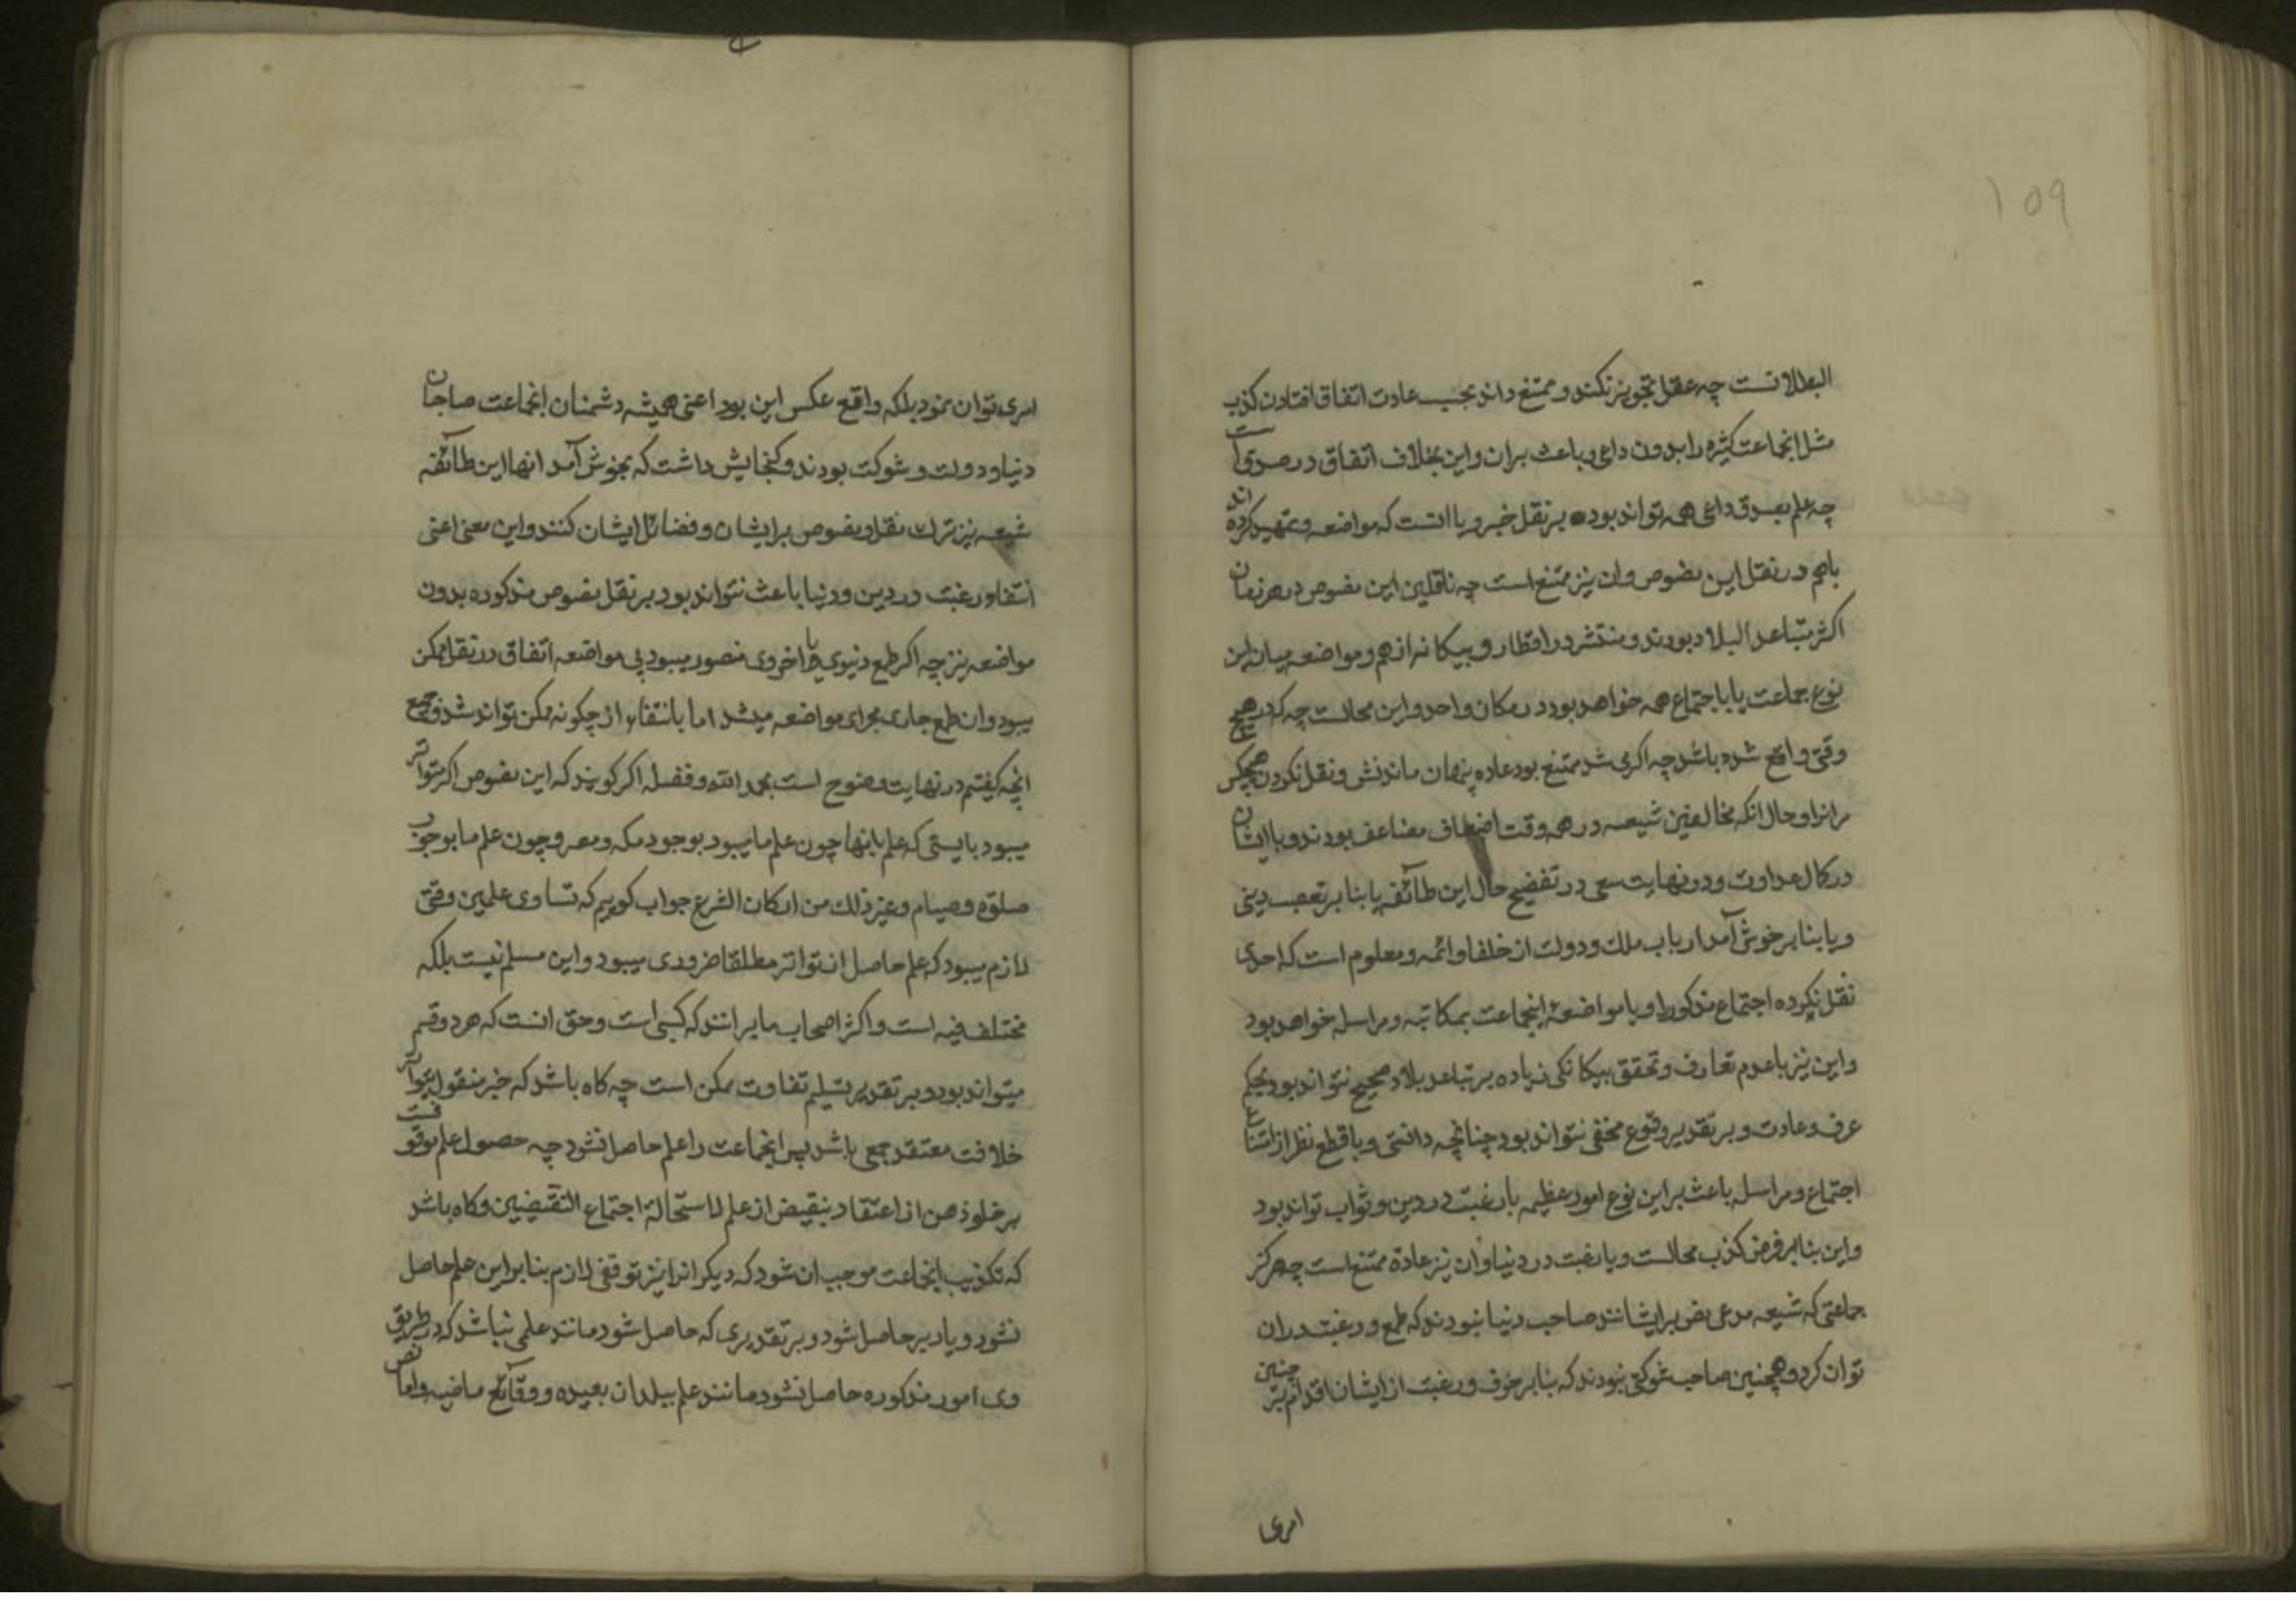 ۱۵۹
البطلانست چه عقل تجویز نکند و ممتنع داند بحسب عادت اتفاق افتادن کذب
مثل انجماعت کثیره را بدون داعی و باعث بران و این بخلاف اتفاق در صدقست
چه علم بصدق داعی همه تواند بود بر نقل خبر و یا انست که مواضعه و تمهید کرده اند
باهم در نقل این نصوص و ان نیز ممتنع است چه ناقلین این نصوص در هر زمان
اکثر متباعد البلاد بودند و منتشر در اقطار و بیکانه از هم و مواضعه میان این
نوع جماعت یا باجتماع همه خواهد بود در مکان واحد و این محالست چه که در هیچ
وقتی واقع شده باشد چه اکر می شد ممتنع بود عاده پنهان ماندنش و نقل نکردن هیچکس
مرانرا و حال انکه مخالفین شیعه در همه وقت اضعاف مضاعف بودند و با ایشان
در کمال عداوت و در نهایت سعی در تفضیح حال این طائفه یا بنا بر تعصب دینی
و یا بنا بر خوش آمد ارباب ملک و دولت از خلفا و ائمه و معلوم است که احدی
نقل نکرده اجتماع مذکور را و یا مواضعۀ اینجماعت بمکاتبه و مراسله خواهد بود
و این نیز با عدم تعارف و تحقق بیکانکی زیاده بر تباعد بلاد صحیح نتواند بود بحکم
عرف و عادت و بر تقدیر وقوع مخفی نتواند بود چنانچه دانستی و با قطع نظر از امتناع
اجتماع و مراسله باعث بر این نوع امور عظیمه یا رغبت در دین و ثواب تواند بود
و این بنا بر فرض کذب محالست و یا رغبت در دنیا و ان نیز عادة ممتنع است چه هرکز
جماعتی که شیعه مدعی نص بر ایشانند صاحب دنیا نبودند که طمع و رغبت دران
توان کرد و همچنین صاحب شوکتی نبودند که بنا بر خوف و رغبت از ایشان اقدام بر چنین
امری
امری توان نمود بلکه واقع عکس این بود اعنی همیشه دشمنان انجماعت صاحبان
دنیا و دولت و شوکت بودند و کنجایش داشت که بخوش آمد انها این طائفه
شیعه نیز ترک نقل و نصوص بر ایشان و فضائل ایشان کنند و این معنی اعنی
انتفاء رغبت در دین و دنیا باعث نتواند بود بر نقل نصوص مذکوره بدون
مواضعه نیز چه اکر طمع دنیوی یا اخروی متصور میبود بی مواضعه اتفاق در نقل ممکن
میبود و ان طمع جاری مجرای مواضعه میشد اما با انتفاء از چکونه ممکن تواند شد و جمیع
انچه کفتیم در نهایت وضوح است بحمد الله و فضله اکر کویند که این نصوص اکر متواتر
میبود بایستی که علم بانها چون علم ما میبود بوجود مکه و مصر و چون علم ما بوجوب
صلوة و صیام و غیر ذلک من ارکان الشرع جواب کوییم که تساوی علمین وقتی
لازم میبود که علم حاصل از تواتر مطلقا ضروری میبود و این مسلم نیست بلکه
مختلف فیه است و اکثر اصحاب ما بر انند که کسبی است و حق انست که هر دو قسم
میتواند بود و بر تقدیر تسلیم تفاوت ممکن است چه کاه باشد که خبر منقول بتواتر
خلاف معتقد جمعی باشد پس انجماعت را علم حاصل نشود چه حصول علم موقوفست
بر خلو ذهن از اعتقاد بنقیض از علم لاستحالة اجتماع النقیضین و کاه باشد
که تکذیب انجماعت موجب ان شود که دیکرانرا نیز توقفی لازم بنا براین علم حاصل
نشود و یا دیر حاصل شود و بر تقدیری که حاصل شود مانند علمی نباشد که در طریق
وی امور مذکوره حاصل نشود مانند علم ببلدان بعیده و وقائع ماضیه و اما نص